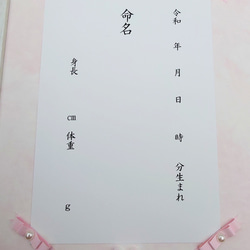 令和 年 月 日 時 分生まれ
命名
身長 cm 体重 g